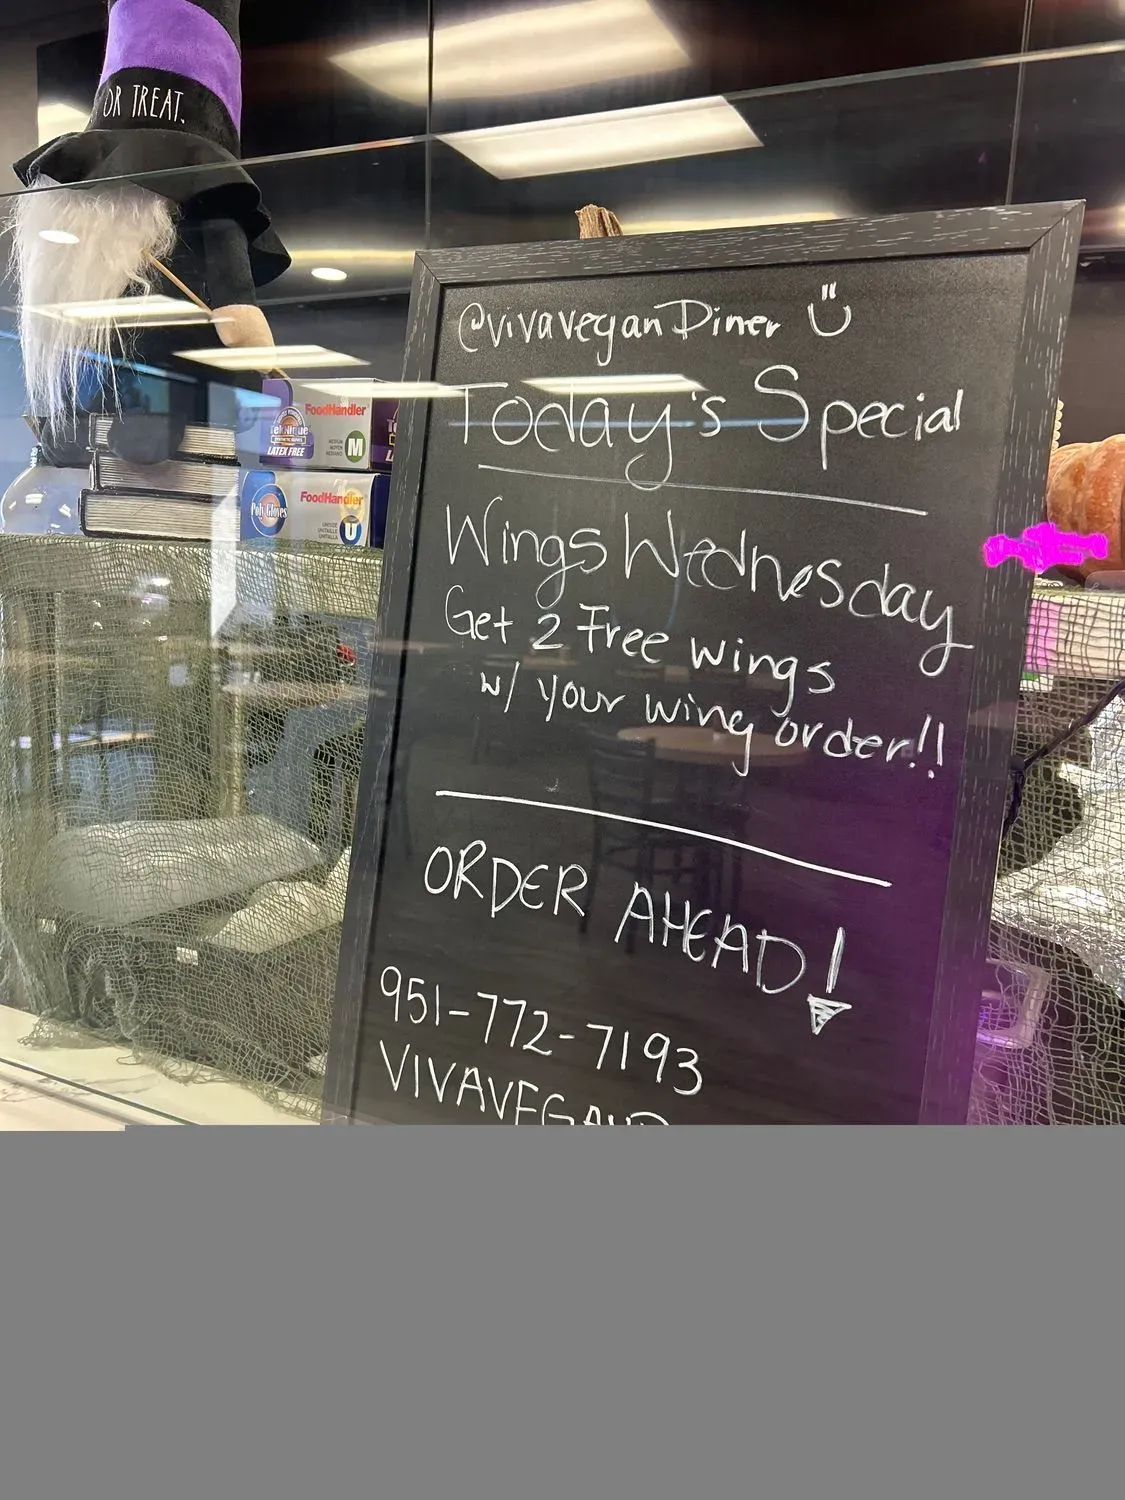 OR TREAT.
@vivaveganDiner
Today's Special
Wings Wednesday
Get 2 Free wings
w/ your wing order!!
ORDER AHEAD!
951-772-7193
FoodHandler
LATEX FREE
M
FoodHandler
Poly Gloves
U